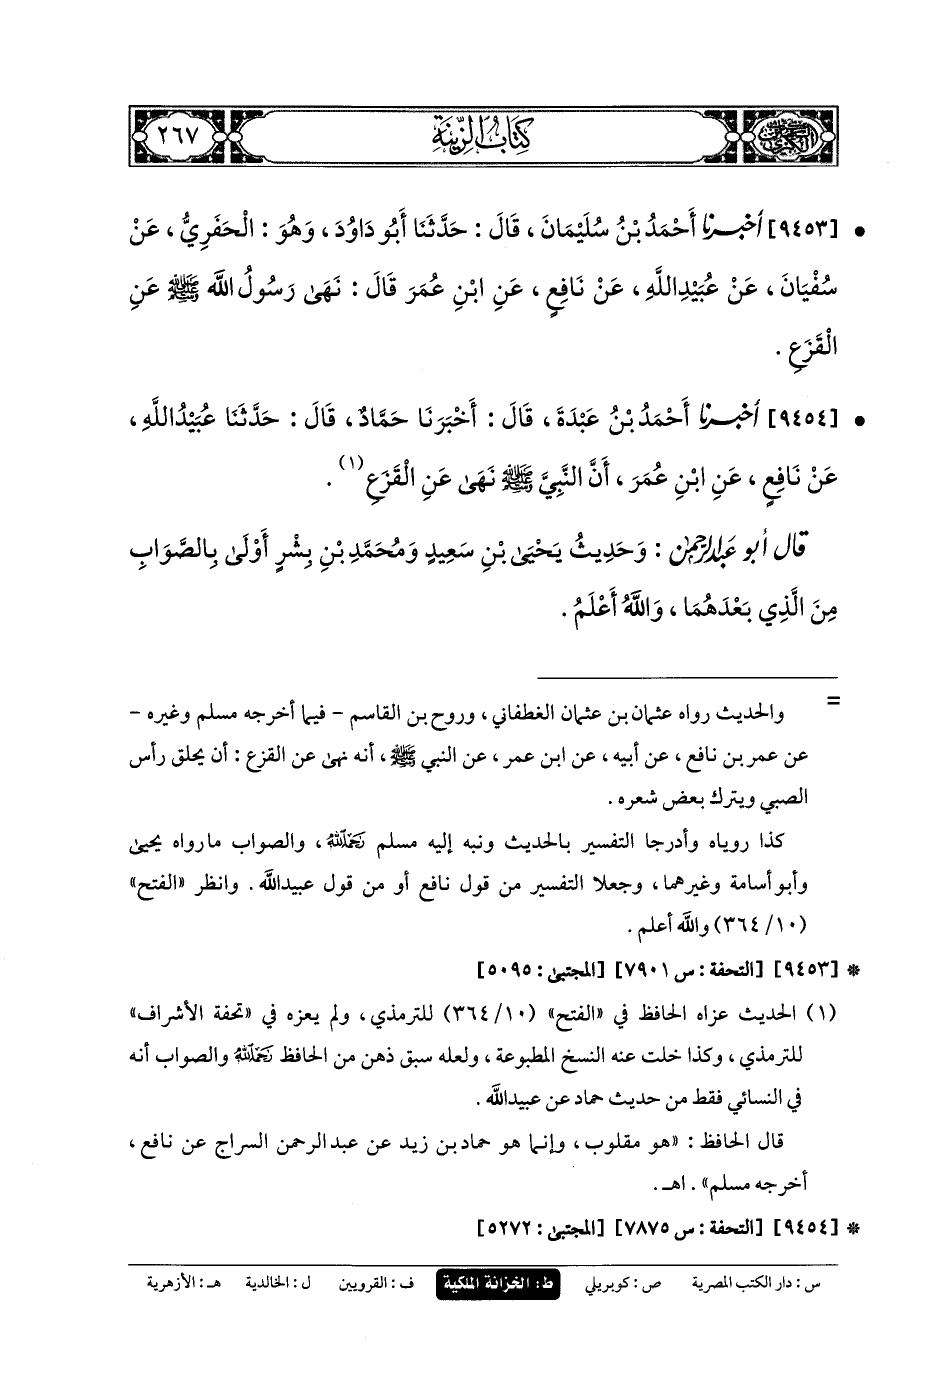 كِتَابُ الزِّينَةِ
٢٦٧
• [٩٤٥٣] أخبرنا أَحْمَدُ بْنُ سُلَيْمَانَ ، قَالَ : حَدَّثَنَا أَبُو دَاوُدَ ، وَهُوَ : الْحَفَرِيُّ ، عَنْ
سُفْيَانَ ، عَنْ عُبَيْدِاللَّهِ ، عَنْ نَافِعٍ ، عَنِ ابْنِ عُمَرَ قَالَ : نَهَى رَسُولُ اللَّه ﷺ عَنِ
الْقَزَعِ .
• [٩٤٥٤] أخبرنا أَحْمَدُ بْنُ عَبْدَةَ ، قَالَ : أَخْبَرَنَا حَمَّادٌ ، قَالَ : حَدَّثَنَا عُبَيْدُاللَّهِ ،
عَنْ نَافِعٍ ، عَنِ ابْنِ عُمَرَ ، أَنَّ النَّبِيَّ ﷺ نَهَى عَنِ الْقَزَعِ (١) .
قال أبو عبدالرحمن : وَحَدِيثُ يَحْيَى بْنِ سَعِيدٍ وَمُحَمَّدِ بْنِ بِشْرٍ أَوْلَى بِالصَّوَابِ
مِنَ الَّذِي بَعْدَهُمَا ، وَاللَّهُ أَعْلَمُ .
= والحديث رواه عثمان بن عثمان الغطفاني ، وروح بن القاسم - فيما أخرجه مسلم وغيره -
عن عمر بن نافع ، عن أبيه ، عن ابن عمر ، عن النبي ﷺ ، أنه نهى عن القزع : أن يحلق رأس
الصبي ويترك بعض شعره .
كذا روياه وأدرجا التفسير بالحديث ونبه إليه مسلم رَحِمَهُ اللَّهُ ، والصواب ما رواه يحيى
وأبو أسامة وغيرهما ، وجعلا التفسير من قول نافع أو من قول عبيداللَّه . وانظر «الفتح»
(١٠/ ٣٦٤) واللَّه أعلم .
* [٩٤٥٣] [التحفة : س ٧٩٠١] [المجتبى : ٥٠٩٥]
(١) الحديث عزاه الحافظ في «الفتح» (١٠/ ٣٦٤) للترمذي ، ولم يعزه في «تحفة الأشراف»
للترمذي ، وكذا خلت عنه النسخ المطبوعة ، ولعله سبق ذهن من الحافظ رَحِمَهُ اللَّهُ والصواب أنه
في النسائي فقط من حديث حماد عن عبيداللَّه .
قال الحافظ : «هو مقلوب ، وإنما هو حماد بن زيد عن عبدالرحمن السراج عن نافع ،
أخرجه مسلم» . اهـ .
* [٩٤٥٤] [التحفة : س ٧٨٧٥] [المجتبى : ٥٢٧٢]
س : دار الكتب المصرية ص : كوبريلي ط : الخزانة الملكية ف : القرويين ل : الخالدية هـ : الأزهرية